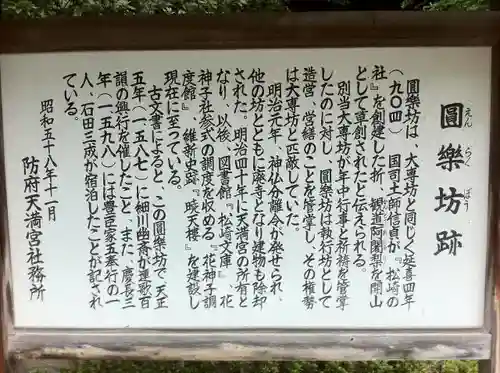 圓樂坊跡
えん らく ぼう
圓樂坊は、大専坊と同じく延喜四年
（九〇四） 国司土師信貞が『松崎の
社』を創建した折、観道阿闍梨を開山
として草創されたと伝えられる。
別当大専坊が年中行事と祈祷を管掌
したのに対し、圓樂坊は執行坊として
造営、営繕のことを管掌し、その権勢
は大専坊と匹敵していた。
明治元年、神仏分離令が発せられ、
他の坊とともに廃寺となり建物も除却
された。明治四十年に天満宮の所有と
なり、以後、図書館『松崎文庫』、花
神子社参式の調度を収める『花神子調
度館』、維新史跡『暁天樓』を建設し
現在に至っている。
古文書によると、この圓樂坊で、天正
五年（一五八七）に細川幽斎が連歌百
韻の興行を催したこと、また、慶長三
年（一五九八）には豊臣家五奉行の一
人、石田三成が宿泊したことが記され
ている。
昭和五十八年十一月
防府天満宮社務所